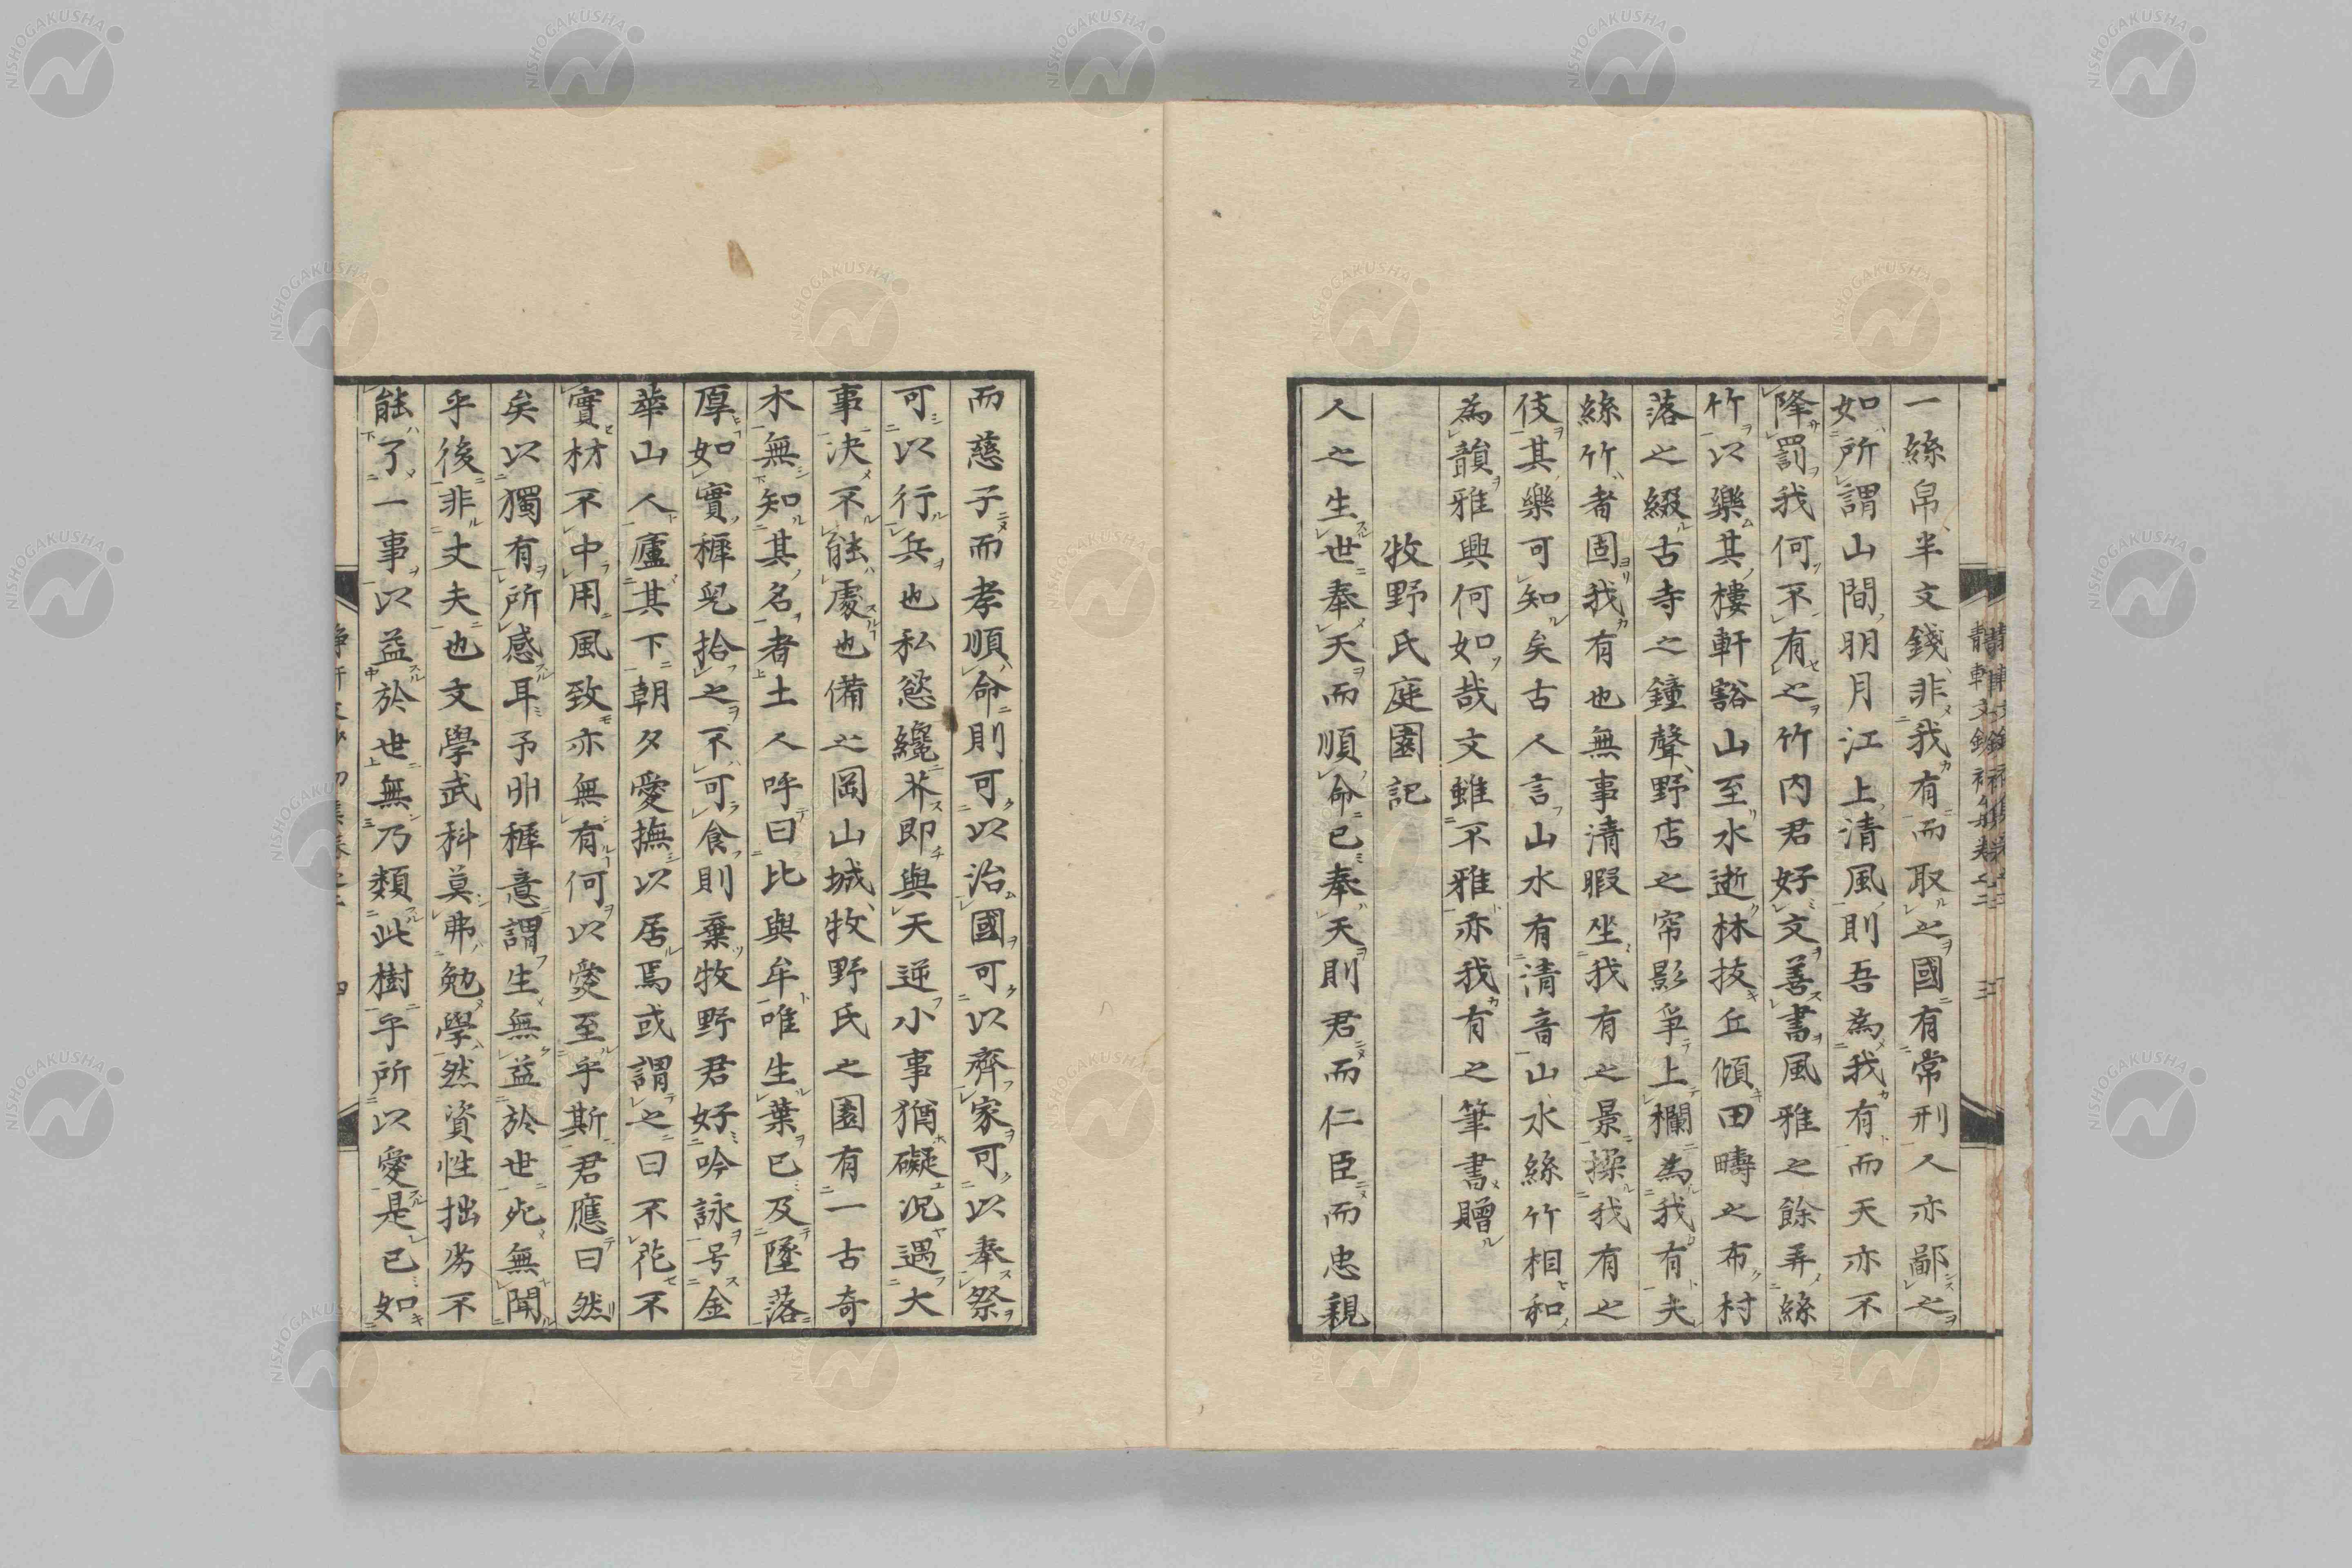 一絲帛半文錢非我有而取之國有常刑人亦鄙之
如所謂山間明月江上清風則吾為我有而天亦不
降罰我何不有之竹内君好文善書風雅之餘弄絲
竹以樂其樓軒豁山至水逝林抜丘傾田疇之布村
落之綴古寺之鐘聲野店之帘影爭上欄為我有夫
絲竹者固我有也無事清暇坐我有之景操我有之
伎其樂可知矣古人言山水有清音山水絲竹相和
為韻雅興何如哉文雖不雅亦我有之筆書贈
牧野氏庭園記
人之生世奉天而順命已奉天則君而仁臣而忠親
而慈子而孝順命則可以治國可以齊家可以奉祭
可以行兵也私慾纔芥即與天逆小事猶礙況遇大
事決不能處也備之岡山城牧野氏之園有一古奇
木無知其名者土人呼曰比與牟唯生葉已及墜落
厚如實穉兒拾之不可食則棄牧野君好吟詠号金
華山人廬其下朝夕愛撫以居焉或謂之曰不花不
實材不中用風致亦無有何以愛至乎斯君應曰然
矣以獨有所感耳予丱穉意謂生無益於世死無聞
乎後非丈夫也文學武科莫弗勉學然資性拙劣不
能了一事以益於世無乃類此樹乎所以愛是已如
NISHOGAKUSHA